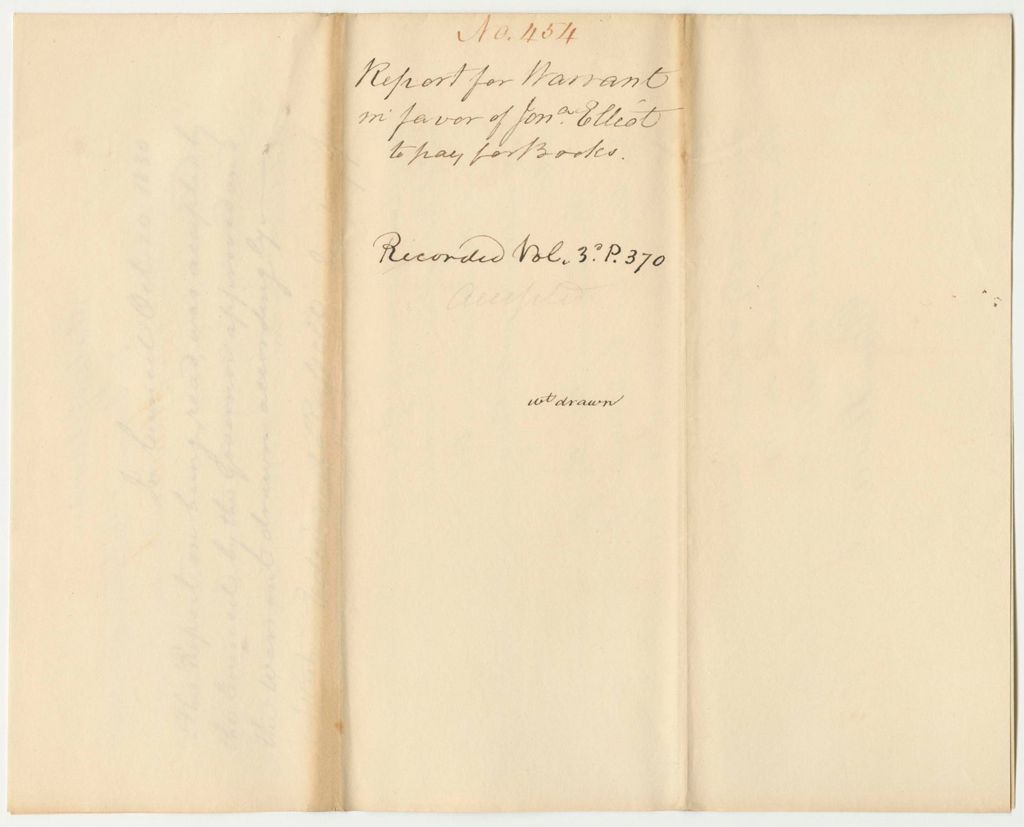 No. 454
Report for Warrant
in favor of Jon.a Elliot
to pay for Books.
Recorded Vol. 3.d P. 370
Accepted
wt drawn
In Council Oct 20 1830
This Report on being read, was accepted by
the Council & by the Governor approved and
the warrant drawn accordingly